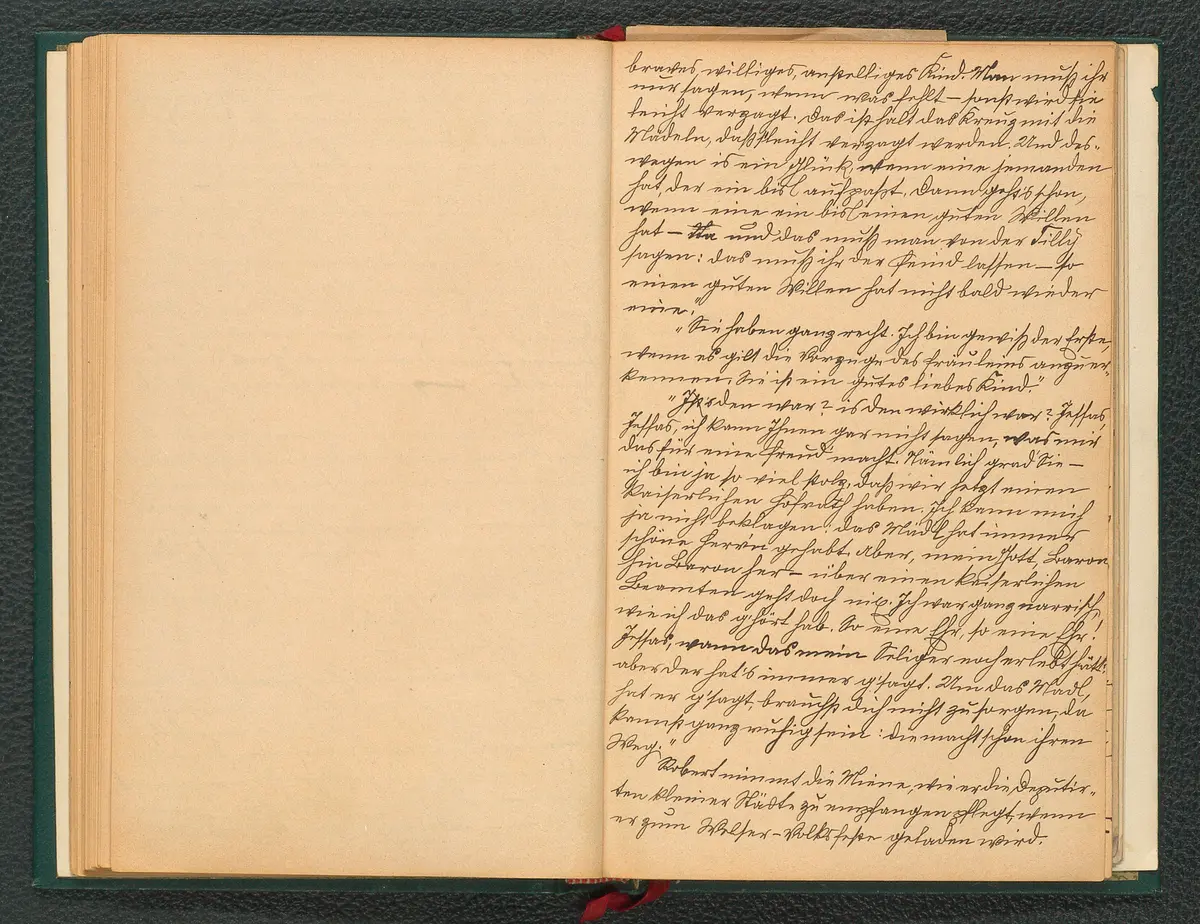 braves, williges, anstelliges Kind. Man muß ihr
nur sagen, wenn was fehlt – sonst wird sie
leicht verzagt. Das ist halt das Kreuz mit die
Mädeln, daß s' leicht verzagt werden. Und des-
wegen is ein Glück, wenn eine jemanden
hat, der ein bisl aufpaßt. Dann geht's schon,
wenn eine ein bisl einen guten Willen
hat – Na und das muß man von der Tilly
sagen: das muß ihr der Feind lassen – so
einen guten Willen hat nicht bald wieder
eine."
"Sie haben ganz recht. Ich bin gewiß der Erste,
wenn es gilt die Vorzüge des Fräuleins anzuer-
kennen. Sie ist ein gutes liebes Kind."
"Is den war? is den wirklich war? Jessas,
Jessas, ich kann Ihnen gar nicht sagen, was mir
das für eine Freud' macht. Nämlich grad Sie –
ich bin ja so viel stolz, daß wir jetzt einen
kaiserlichen Hofrath haben. Ich kann mich
ja nicht beklagen: das Mädl hat immer
schöne Herrn gehabt. Aber, mein Gott, Baron
hin Baron her – über einen kaiserlichen
Beamten geht doch nix. Ich war ganz narrisch,
wie ich das g'hört hab. So eine Ehr, so eine Ehr!
Jessas, wann das mein Seliger noch erlebt hätt:
aber der hat's immer g'sagt. Um das Mädl,
hat er g'sagt, brauchst dich nicht zu sorgen, da
kannst ganz ruhig sein: die macht schon ihren
Weg."
Robert nimmt die Miene, wie er die Deputir-
ten kleiner Städte zu empfangen pflegt, wenn
er zum Welser-Volksfeste geladen wird.